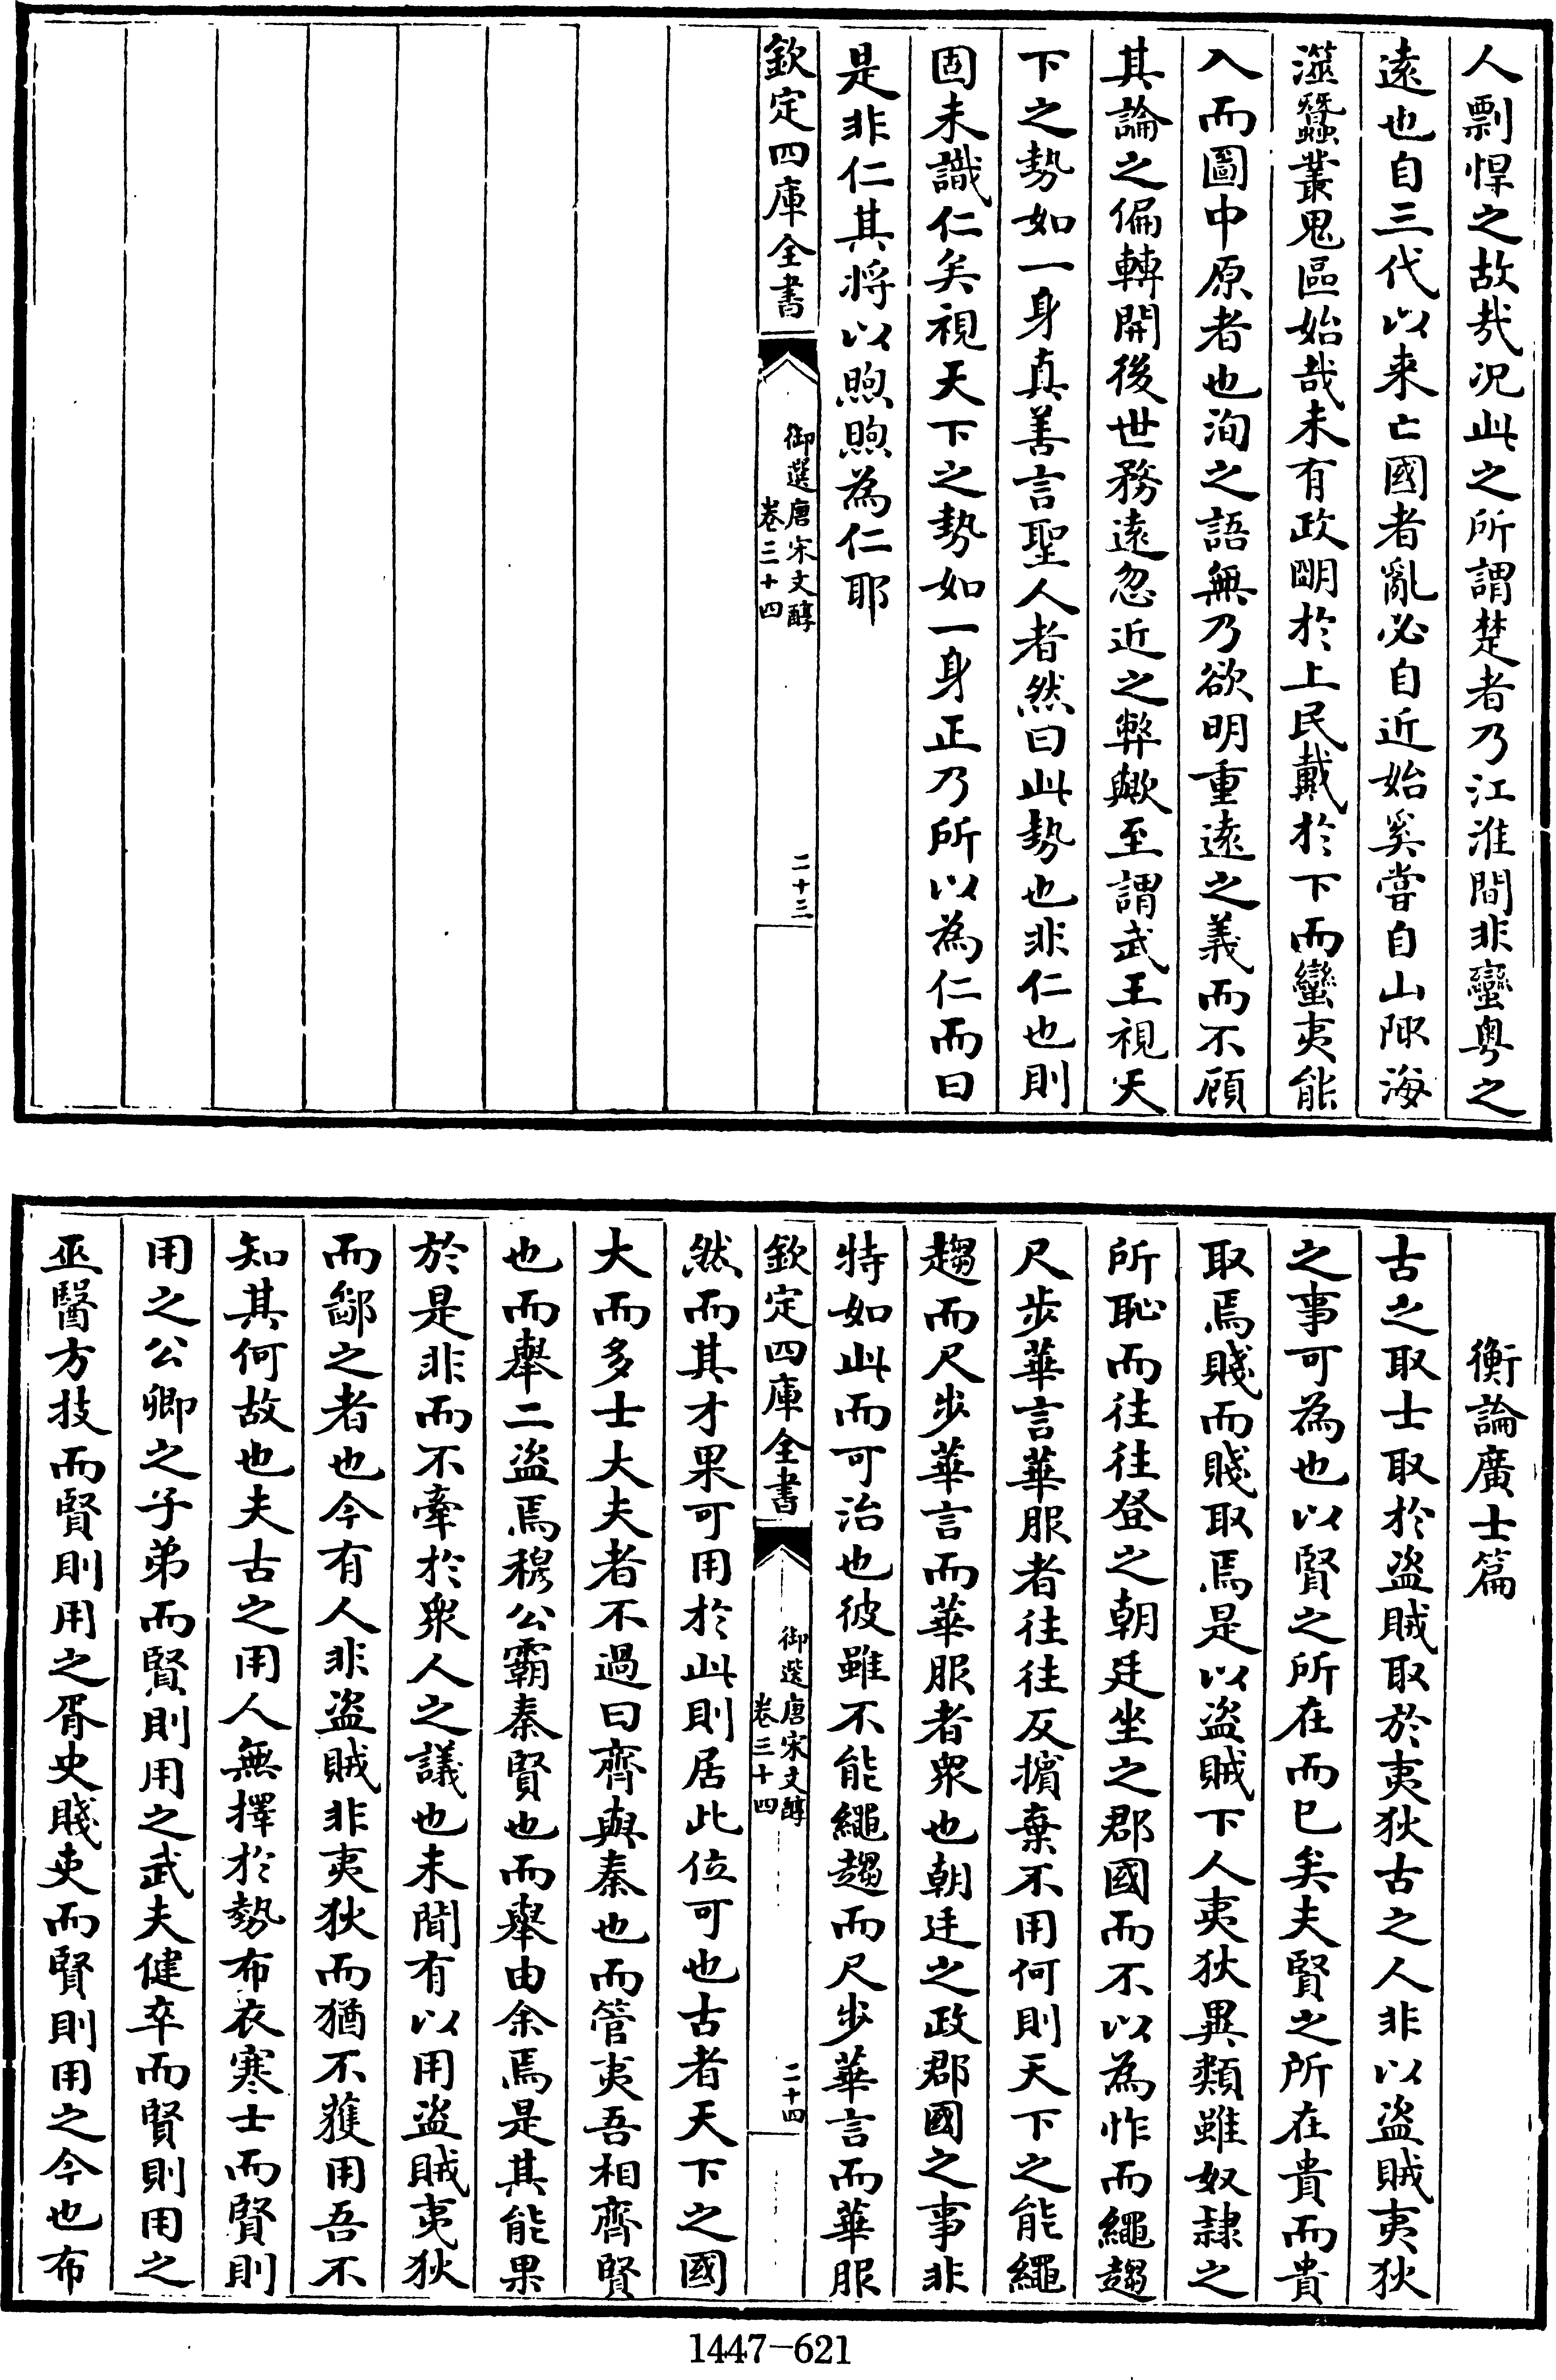 人剽悍之故哉况此之所謂楚者乃江淮間非蠻粤之
遠也自三代以来亡國者亂必自近始奚嘗自山陬海
澨蠶叢鬼區始哉未有政明於上民戴於下而蠻夷能
入而圖中原者也洵之語無乃欲明重遠之義而不顧
其論之偏轉開後世務遠忽近之弊歟至謂武王視天
下之勢如一身真善言聖人者然曰此勢也非仁也則
固未識仁矣視天下之勢如一身正乃所以為仁而曰
是非仁其将以煦煦為仁耶
欽定四庫全書
御選唐宋文醇
卷三十四
二十三
衡論廣士篇
古之取士取於盗賊取於夷狄古之人非以盗賊夷狄
之事可為也以賢之所在而已矣夫賢之所在貴而貴
取焉賤而賤取焉是以盗賊下人夷狄異類雖奴隷之
所恥而往往登之朝廷坐之郡國而不以為怍而繩趨
尺步華言華服者往往反擯棄不用何則天下之能繩
趨而尺步華言而華服者衆也朝廷之政郡國之事非
特如此而可治也彼雖不能繩趨而尺步華言而華服
欽定四庫全書
御選唐宋文醇
卷三十四
二十四
然而其才果可用於此則居此位可也古者天下之國
大而多士大夫者不過曰齊與秦也而管夷吾相齊賢
也而舉二盗焉穆公霸秦賢也而舉由余焉是其能果
於是非而不牽於衆人之議也未聞有以用盗賊夷狄
而鄙之者也今有人非盗賊非夷狄而猶不獲用吾不
知其何故也夫古之用人無擇於勢布衣寒士而賢則
用之公卿之子弟而賢則用之武夫健卒而賢則用之
巫醫方技而賢則用之胥史賤吏而賢則用之今也布
1447-621